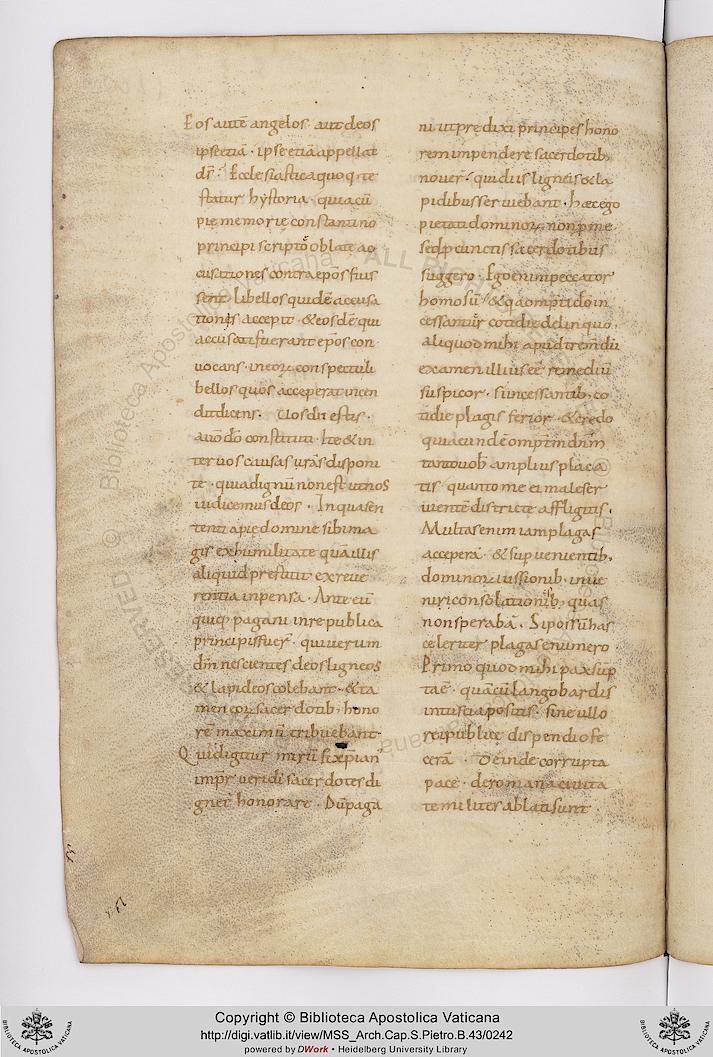 Eos autē angelos. aut deos
ipse etiā. ipse etiā appellat
dr̄. Ecclesiastica quoq. te
statur hystoria quia cū
pie memorie constantino
principi scripto oblate ac
cusationes contra epōs fuis
sent. libellos quidē accusa
tionis accepit. & eosdē qui
accusati fuerant epōs con
uocans. in eor̄ conspectu li
bellos quos acceperat incen
dit dicens. Vos dii estis.
a uō dō constituti. Ite & in
ter uos causas ur̄as disponi
te. quia dignū non est ut nos
iudicemus deos. In qua sen
tentia pie domine sibi ma
gis ex humilitate quā illis
aliquid prestitit ex reue
rentia inpensa. Ante eū
quip̄ pagani in re publica
principis fuer̄. qui uerum
dm̄ nescientes deos ligneos
& lapideos colebant. & ta
men eor̄ sacerdotib; hono
rē maximū tribuebant.
Quid igitur mirū si xp̄ian
imp̄r ueri di sacerdotes di
gnet̄ honorare. Dū paga
ni ut predixi principes hono
rem impendere sacerdotib;
nouer̄. qui diis ligneis & la
pidibus seruiebant. hęc ego
pietati dominor̄. non p̄ me
sed p cunctis sacerdotibus
suggero. Ego enim peccator
homo sū. & q̄a ompt̄i dō in
cessantur̄ cotidie delinquo.
aliquod mihi apud tremdū
examen illius ēē remediū
suspicor. si incessantib; co
tidie plagis ferior. & credo
quia eundē omptm̄ dnm̄
tanto uob̄ amplius placa
tis. quanto me ei male ser
uientē districte affligitis.
Multas enim iam plagas
acceperā. & supuenientib;
dominor̄ iussionib; inue
ni consolationib; quas
non sperabā. Si possū has
celeriter plagas enumero
Primo quod mihi pax sup
tac̄. quā cū langobardis
in tuscia positis. sine ullo
rei publice dispendio fe
cerā. Deinde corrupta
pace. de romana ciuita
te milites ablati sunt.
Copyright © Biblioteca Apostolica Vaticana
http://digi.vatlib.it/view/MSS_Arch.Cap.S.Pietro.B.43/0242
powered by DWork • Heidelberg University Library